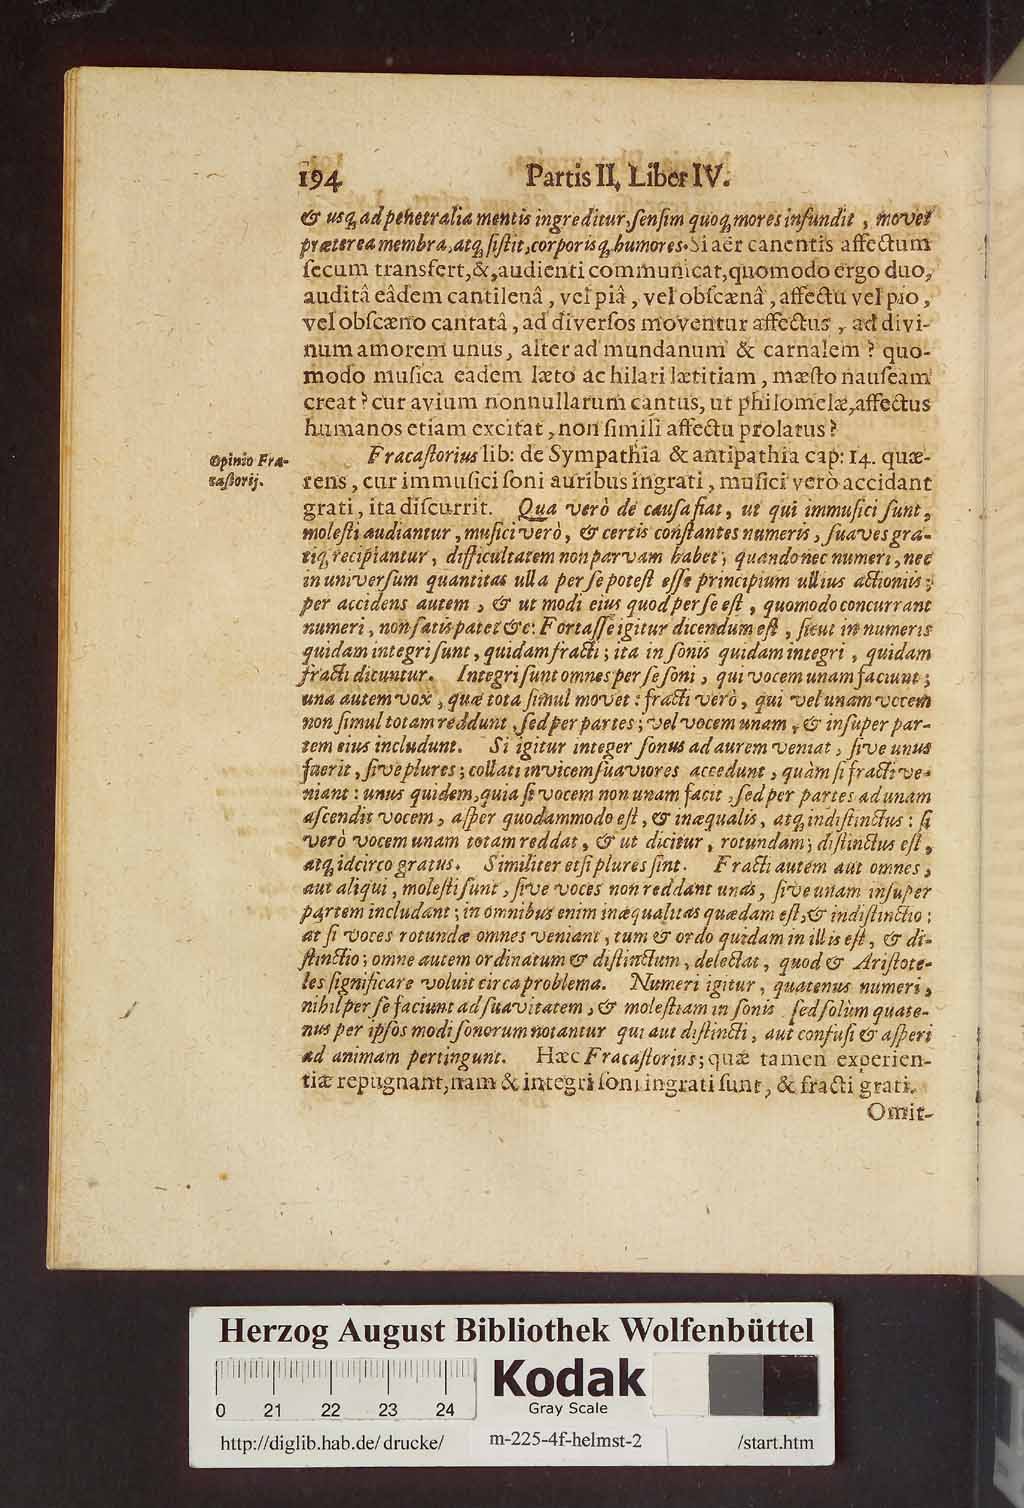 194 Partis II, Liber IV.
& usq; ad penetralia mentis ingreditur, ſenſim quoq; mores infundit, movet
præterea membra, atq; ſiſtit, corporisq; humores. Si aër canentis affectum
ſecum transfert, &, audienti communicat, quomodo ergo duo,
auditâ eâdem cantilenâ, vel piâ, vel obſcænâ, affectu vel pio,
vel obſcæno cantatâ, ad diverſos moventur affectus, ad divi-
num amorem unus, alter ad mundanum & carnalem? quo-
modo muſica eadem læto ac hilari lætitiam, mæſto nauſeam
creat? cur avium nonnullarum cantus, ut philomelæ, affectus
humanos etiam excitat, non ſimili affectu prolatus?
Opinio Fra-
caſtorij.
Fracaſtorius lib: de Sympathia & antipathia cap: 14. quæ-
rens, cur immuſici ſoni auribus ingrati, muſici verò accidant
grati, ita diſcurrit. Qua verò de cauſa fiat, ut qui immuſici ſunt,
moleſti audiantur, muſici verò, & certis conſtantes numeris, ſuaves gra-
tiq; recipiantur, difficultatem non parvam habet; quando nec numeri, nec
in univerſum quantitas ulla per ſe poteſt eſſe principium ullius actioniis;
per accidens autem, & ut modi eius quod per ſe eſt, quomodo concurrant
numeri, non ſatis patet &c: Fortaſſe igitur dicendum eſt, ſicut in numeris
quidam integri ſunt, quidam fracti; ita in ſonis quidam integri, quidam
fracti dicuntur. Integri ſunt omnes per ſe ſoni, qui vocem unam faciunt;
una autem vox, quæ tota ſimul movet: fracti verò, qui vel unam vocem
non ſimul totam reddunt, ſed per partes; vel vocem unam, & inſuper par-
tem eius includunt. Si igitur integer ſonus ad aurem veniat, ſive unus
fuerit, ſive plures; collati invicem ſuaviores accedunt, quàm ſi fracti ve-
niant: unus quidem, quia ſi vocem non unam facit, ſed per partes ad unam
aſcendit vocem, aſper quodammodo eſt, & inæqualis, atq; indiſtinctus: ſi
verò vocem unam totam reddat, & ut dicitur, rotundam; diſtinctus eſt,
atq; idcirco gratus. Similiter etſi plures ſint. Fracti autem aut omnes,
aut aliqui, moleſti ſunt, ſive voces non reddant unas, ſive unam inſuper
partem includant; in omnibus enim inæqualitas quædam eſt, & indiſtinctio:
at ſi voces rotundæ omnes veniant, tum & ordo quidam in illis eſt, & di-
ſtinctio; omne autem ordinatum & diſtinctum, delectat, quod & Ariſtote-
les ſignificare voluit circa problema. Numeri igitur, quatenus numeri,
nihil per ſe faciunt ad ſuavitatem, & moleſtiam in ſonis ſed ſolùm quate-
nus per ipſos modi ſonorum notantur qui aut diſtincti, aut confuſi & aſperi
ad animam pertingunt. Hæc Fracaſtorius; quæ tamen experien-
tiæ repugnant, nam & integri ſoni ingrati ſunt, & fracti grati.
Omit-
Herzog August Bibliothek Wolfenbüttel
Kodak
Gray Scale
0 21 22 23 24
http://diglib.hab.de/drucke/ m-225-4f-helmst-2 /start.htm